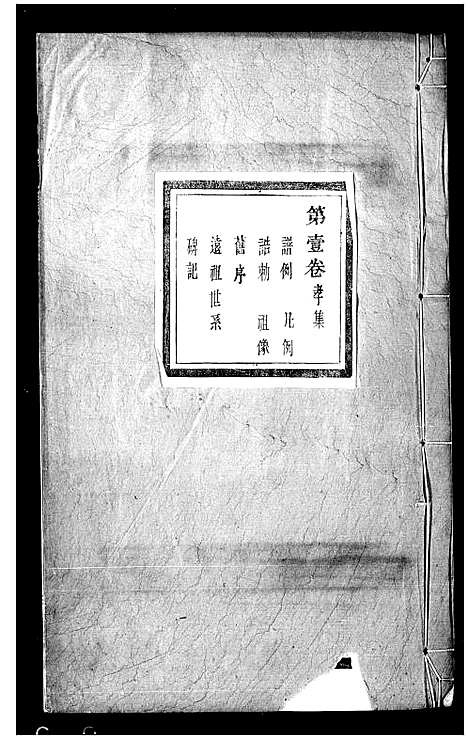 第壹卷 孝集
譜例 凡例
誥勅 祖像
舊序
遠祖世系
碑記